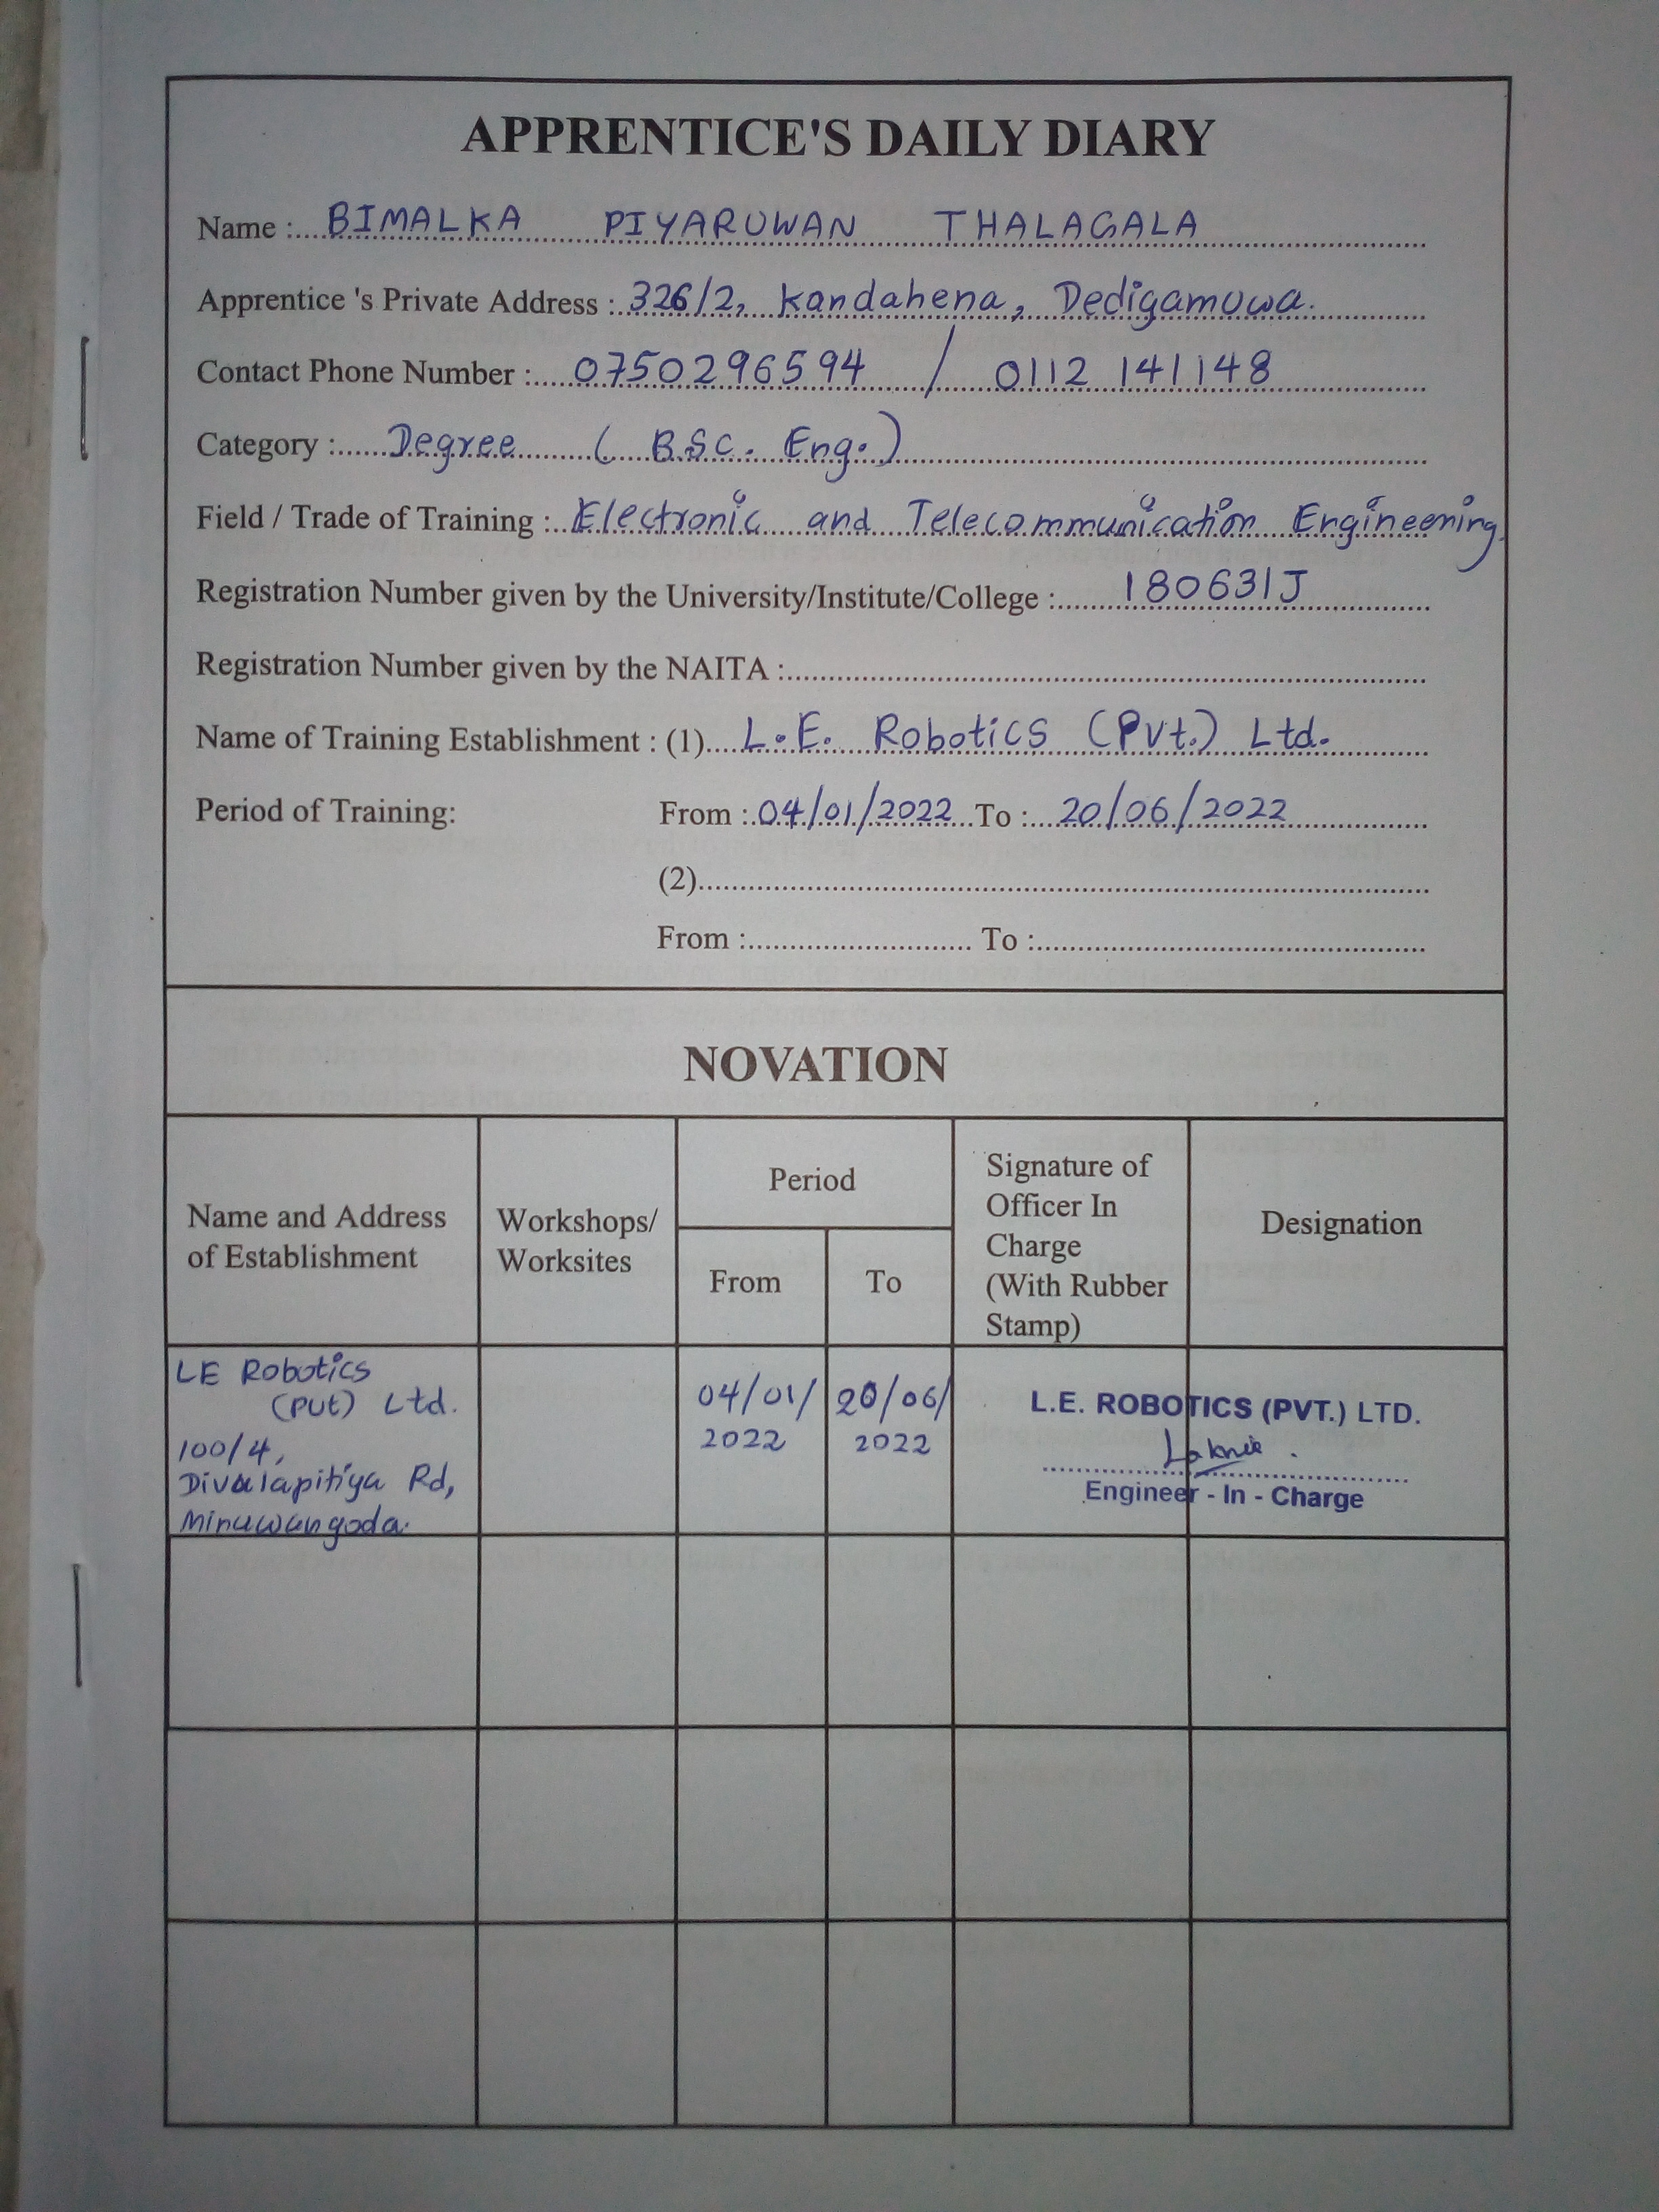 APPRENTICE'S DAILY DIARY
Name : BIMALKA PIYARUWAN THALAGALA
Apprentice 's Private Address : 326/2, Kandahena, Dedigamuwa.
Contact Phone Number : 0750296594 / 0112 141148
Category : Degree ( B.Sc. Eng.)
Field / Trade of Training : Electronic and Telecommunication Engineering
Registration Number given by the University/Institute/College : 180631J
Registration Number given by the NAITA :
Name of Training Establishment : (1) L.E. Robotics (Pvt.) Ltd.
Period of Training: From : 04/01/2022 To : 20/06/2022
(2)
From : To :
NOVATION
Name and Address
of Establishment
Workshops/
Worksites
Period
From
To
Signature of
Officer In
Charge
(With Rubber
Stamp)
Designation
LE Robotics
(Pvt) Ltd.
100/4,
Divulapitiya Rd,
Minuwangoda.
04/01/
2022
20/06/
2022
L.E. ROBOTICS (PVT.) LTD.
Engineer - In - Charge